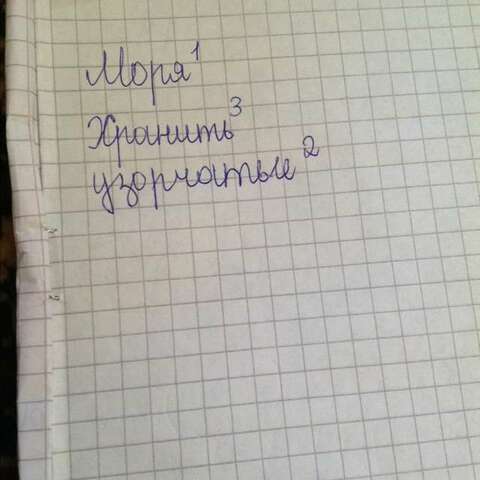 Моря¹
Хранить³
узорчатые²